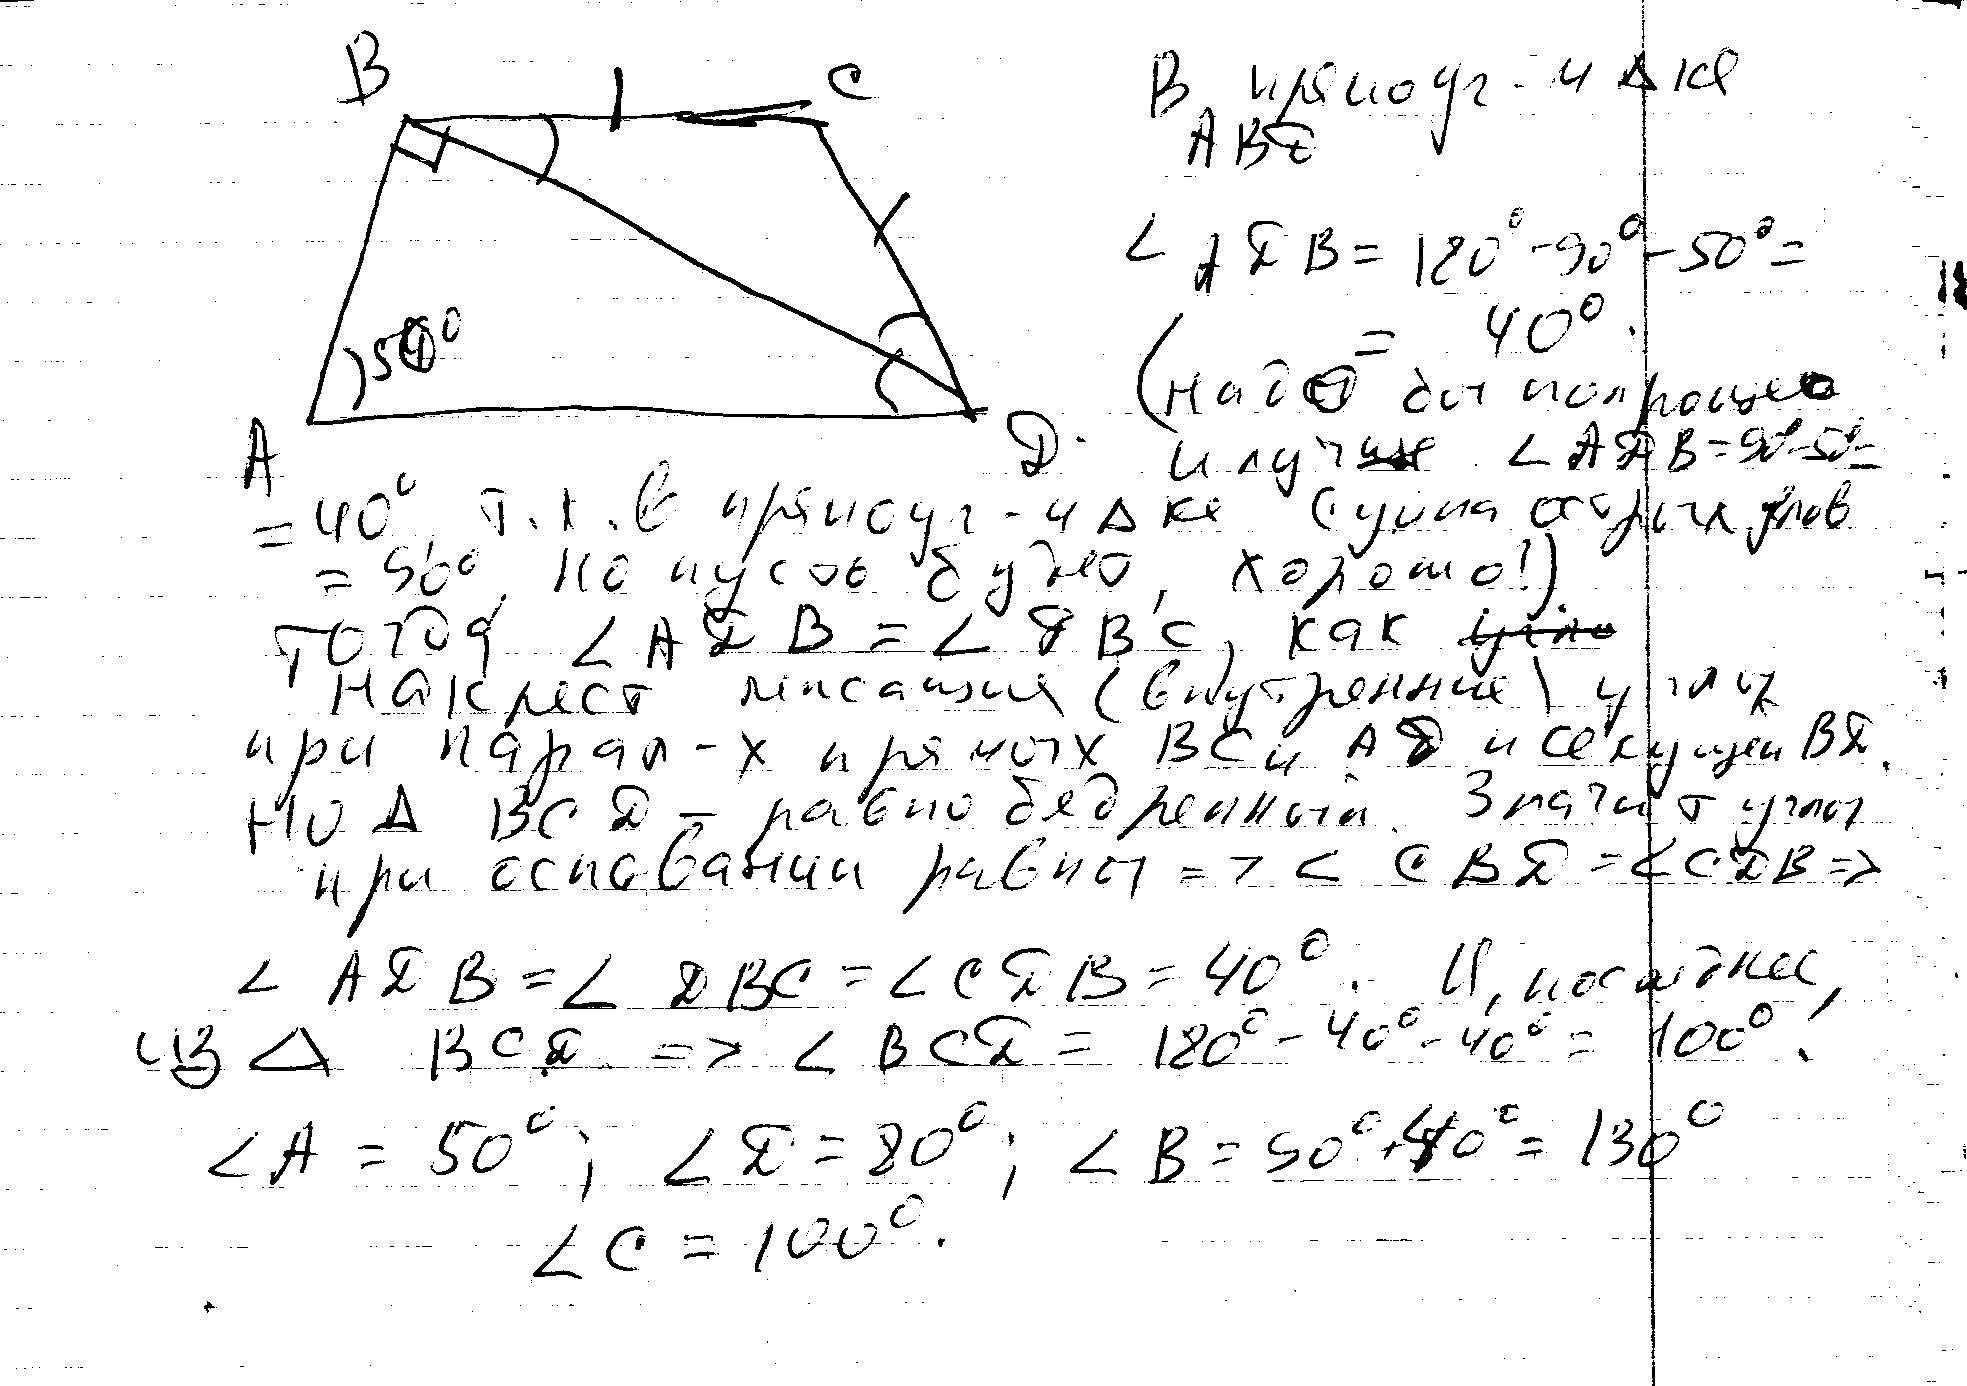 B C
50°
A D
В прямоуг-м Δке
ABD
∠ ADB = 180° - 90° - 50° =
= 40°.
(надо бы попроще
и лучше ∠ ADB = 90° - 50° =
= 40°, т.к. в прямоуг-м Δке сумма острых углов
= 90°, но пусть будет, хорошо!)
Тогда ∠ ADB = ∠ DBC, как
накрест лежащие (внутренние) углы
при парал-х прямых BC и AD и секущей BD.
Но Δ BCD - равнобедренный. Значит углы
при основании равны => ∠ CBD = ∠CDB =>
∠ ADB = ∠ DBC = ∠CDB = 40°. И, последнее,
из Δ BCD => ∠ BCD = 180° - 40° - 40° = 100°!
∠A = 50°; ∠D = 80°; ∠B = 90° + 40° = 130°
∠C = 100°.